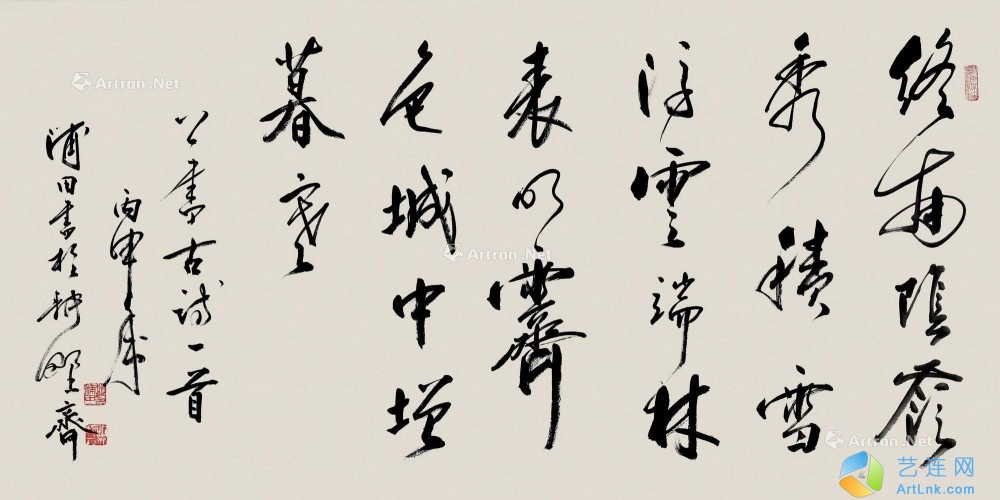 終南陰嶺
秀積雪
浮雲端林
表明霽
色城中增
暮寒
書古詩一首
丙申
浦田書於齋
Artron.Net
Artron.Net
Artron.Net
Artron.Net
艺连网
ArtLnk.com